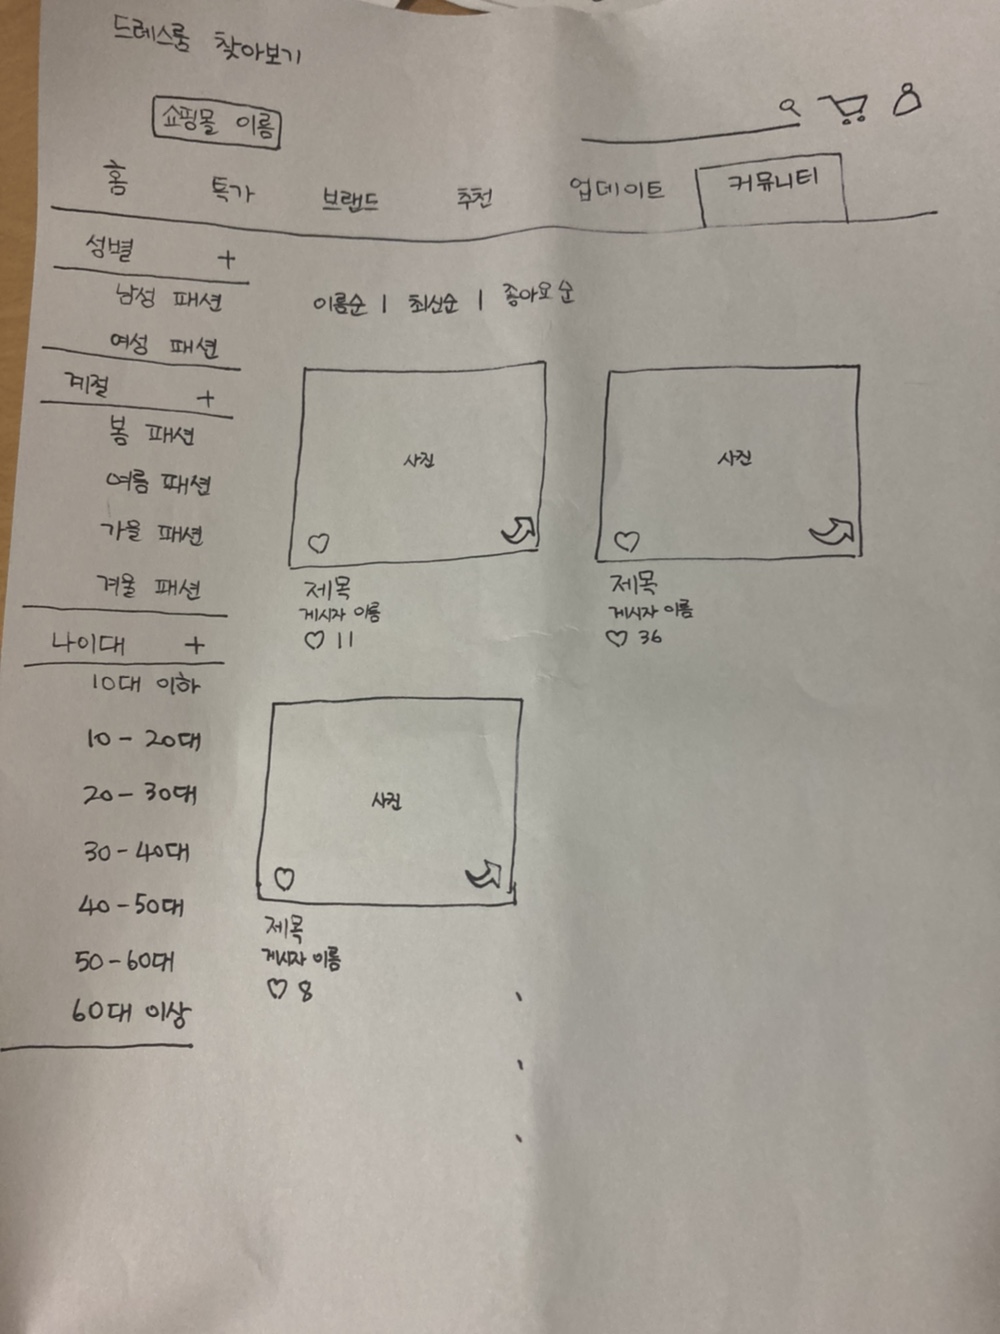 드레스룸 찾아보기
쇼핑몰 이름
홈 특가 브랜드 추천 업데이트 커뮤니티
성별 +
남성 패션
여성 패션
계절 +
봄 패션
여름 패션
가을 패션
겨울 패션
나이대 +
10대 이하
10-20대
20-30대
30-40대
40-50대
50-60대
60대 이상
이름순 | 최신순 | 좋아요 순
사진
제목
게시자 이름
♡ 11
사진
제목
게시자 이름
♡ 36
사진
제목
게시자 이름
♡ 8